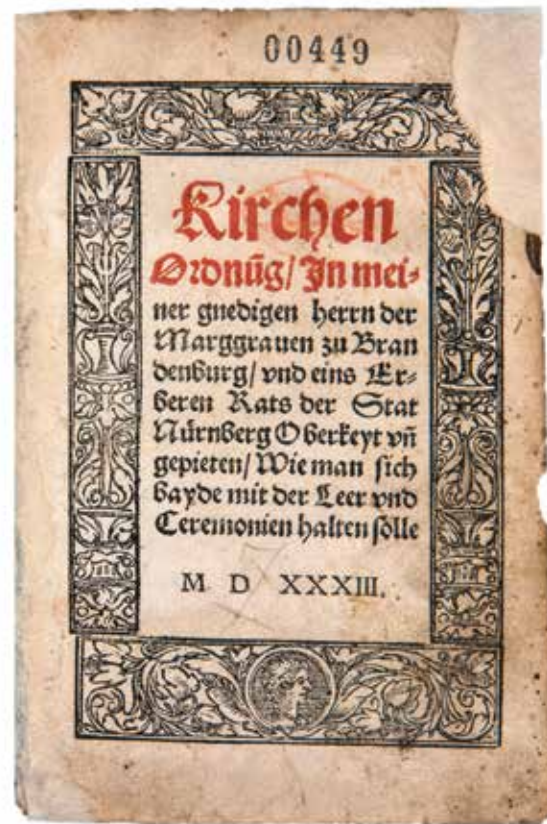 00449
Kirchen
Ordnũg/ In mei-
ner gnedigen herrn der
Marggrauen zu Bran
denburg/ vnd eins Er-
beren Rats der Stat
Nürnberg Oberkeyt vñ
gepieten/ Wie man sich
bayde mit der Leer vnd
Ceremonien halten solle
M D XXXIII.